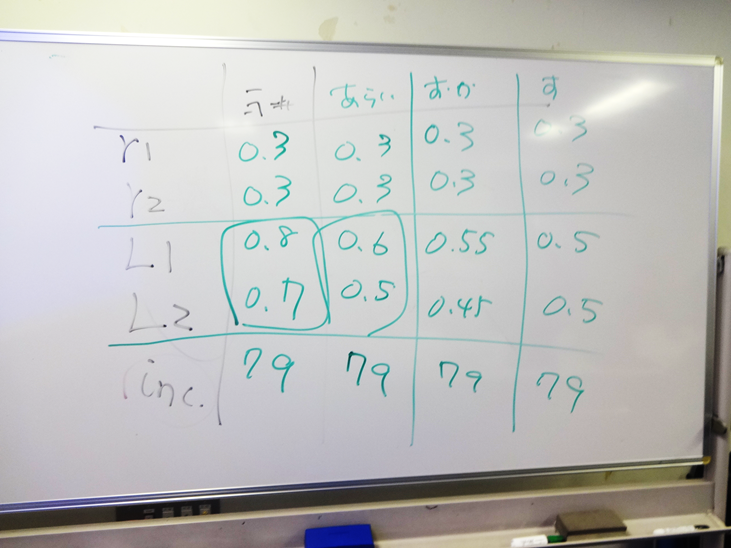 あらい す
r1 0.3 0.3 0.3 0.3
r2 0.3 0.3 0.3 0.3
L1 0.8 0.6 0.55 0.5
L2 0.7 0.5 0.45 0.5
inc. 79 79 79 79